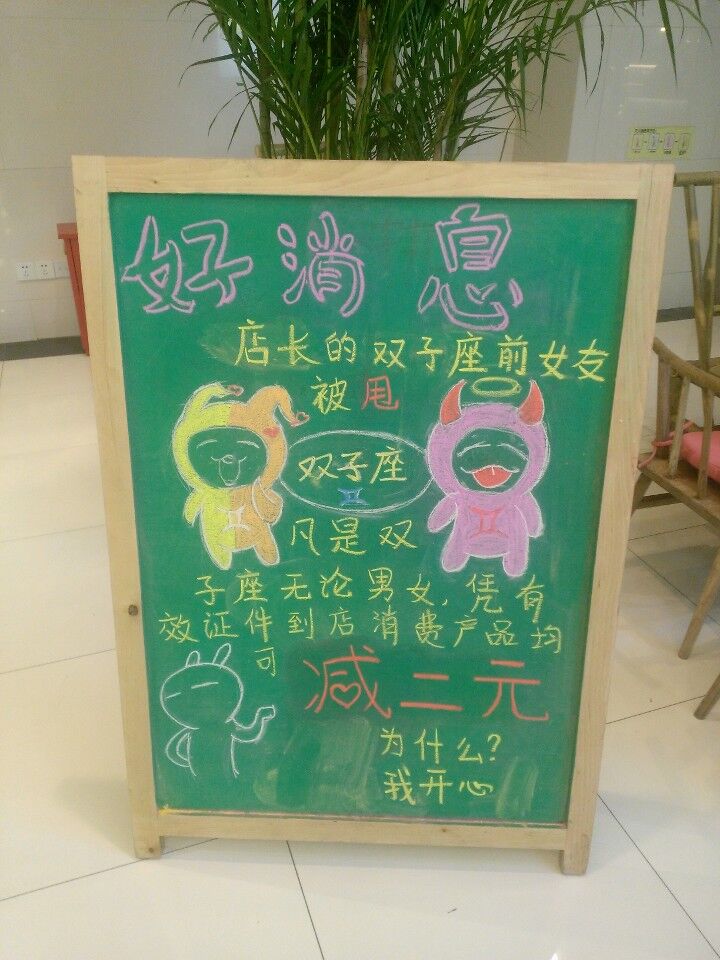 好消息
店长的双子座前女友
被甩
双子座
凡是双
子座无论男女，凭有
效证件到店消费产品均
可减二元
为什么？
我开心